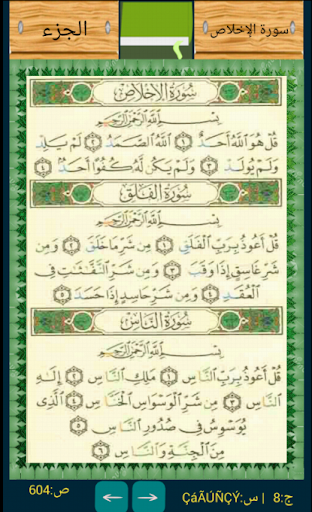 سورة الإخلاص
٢
الجزء
سُورَةُ الإِخْلَاصِ
بِسْمِ اللَّهِ الرَّحْمَٰنِ الرَّحِيمِ
قُلْ هُوَ اللَّهُ أَحَدٌ ١ اللَّهُ الصَّمَدُ ٢ لَمْ يَلِدْ
وَلَمْ يُولَدْ ٣ وَلَمْ يَكُن لَّهُ كُفُوًا أَحَدٌ ٤
سُورَةُ الفَلَقِ
بِسْمِ اللَّهِ الرَّحْمَٰنِ الرَّحِيمِ
قُلْ أَعُوذُ بِرَبِّ الْفَلَقِ ١ مِن شَرِّ مَا خَلَقَ ٢ وَمِن
شَرِّ غَاسِقٍ إِذَا وَقَبَ ٣ وَمِن شَرِّ النَّفَّٰثَٰتِ فِى
الْعُقَدِ ٤ وَمِن شَرِّ حَاسِدٍ إِذَا حَسَدَ ٥
سُورَةُ النَّاسِ
بِسْمِ اللَّهِ الرَّحْمَٰنِ الرَّحِيمِ
قُلْ أَعُوذُ بِرَبِّ النَّاسِ ١ مَلِكِ النَّاسِ ٢ إِلَٰهِ
النَّاسِ ٣ مِن شَرِّ الْوَسْوَاسِ الْخَنَّاسِ ٤ الَّذِى
يُوَسْوِسُ فِى صُدُورِ النَّاسِ ٥
مِنَ الْجِنَّةِ وَالنَّاسِ ٦
ج:8 | س:ÇáÃÚÑÇÝ
ص:604